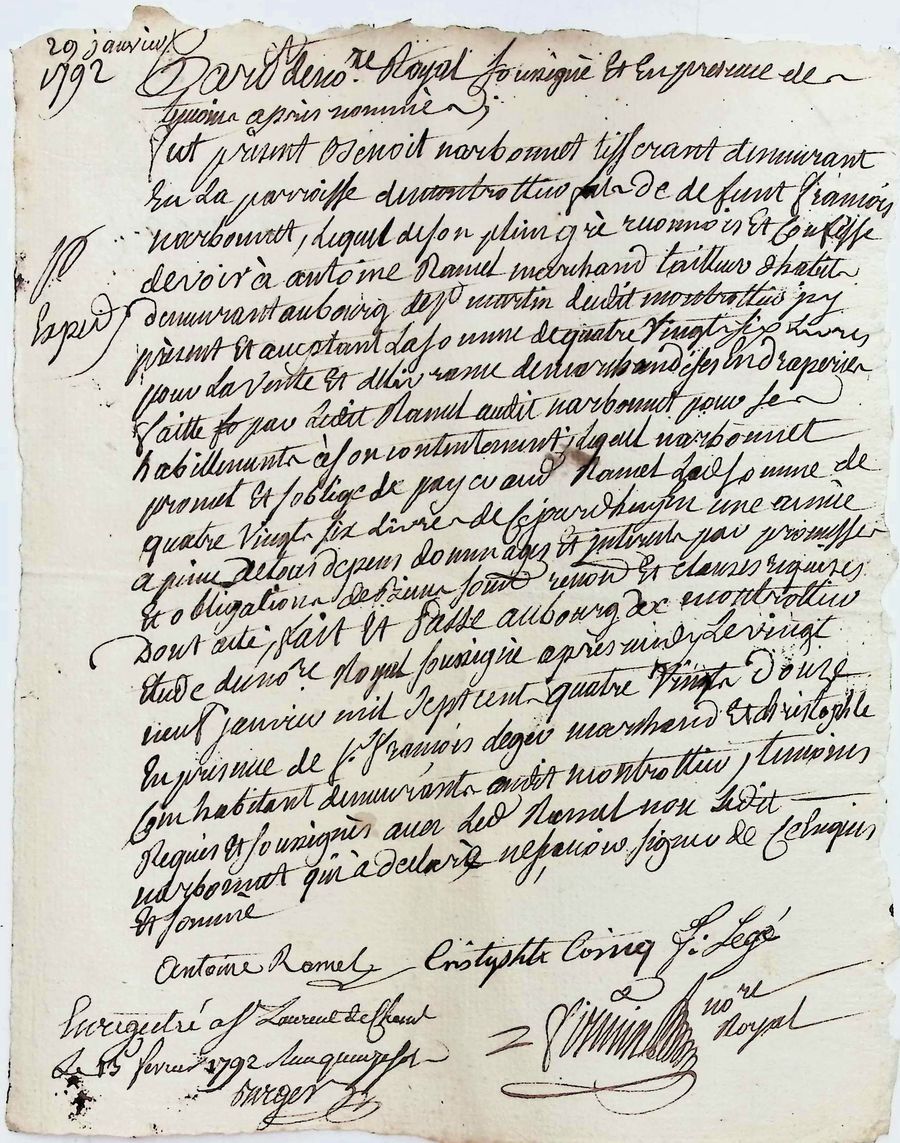 29 janvier
1792
Pard.t le no.re Royal sousigné Et En presence de
temoins après nommés
fut présent Benoit narbonnet tisserant demeurant
En La parroisse de montrottier fils De defunt François
narbonnet, Lequel de son plein gré reconnois Et Confesse
devoir à antoine Ramel marchand tailleur d'habits
demeurant au bourg de St martin dudit montrottier icy
présent Et acceptant La somme de quatre Vingt six Livres
pour La Vente Et delivrance de marchandises En draperies
faitte par Ledit Ramel audit narbonnet pour ses
habillements à son contentement, Lequel narbonnet
promet Et s'oblige de payer aud. Ramel Lad. somme de
quatre Vingt six Livres de Ce jourdhuy En une année
a peine De tous depens dommages Et interets par promesses
Et obligations de Biens soum. renon. Et clauses requises
Dont acte, fait Et Passé au bourg de montrottier
Etude du no.re Royal sousigné après midy Le vingt
neuf janvier mil sept cent quatre Vingt Douze
En presence de S.r François deger marchand Et christophle
habitant demeurants audit montrottier, temoins
Requis Et sousignés avec Led. Ramel non Ledit
narbonnet qui à declaré ne sçavoir signer de Ce Enquis
Et sommé
Expéd.
Antoine Ramel Cristophle Coinq f. Legé
no.re
Royal
Enregistré a St Laurent de Cham.t
Le 13 fevrier 1792 Reçu quinze sols